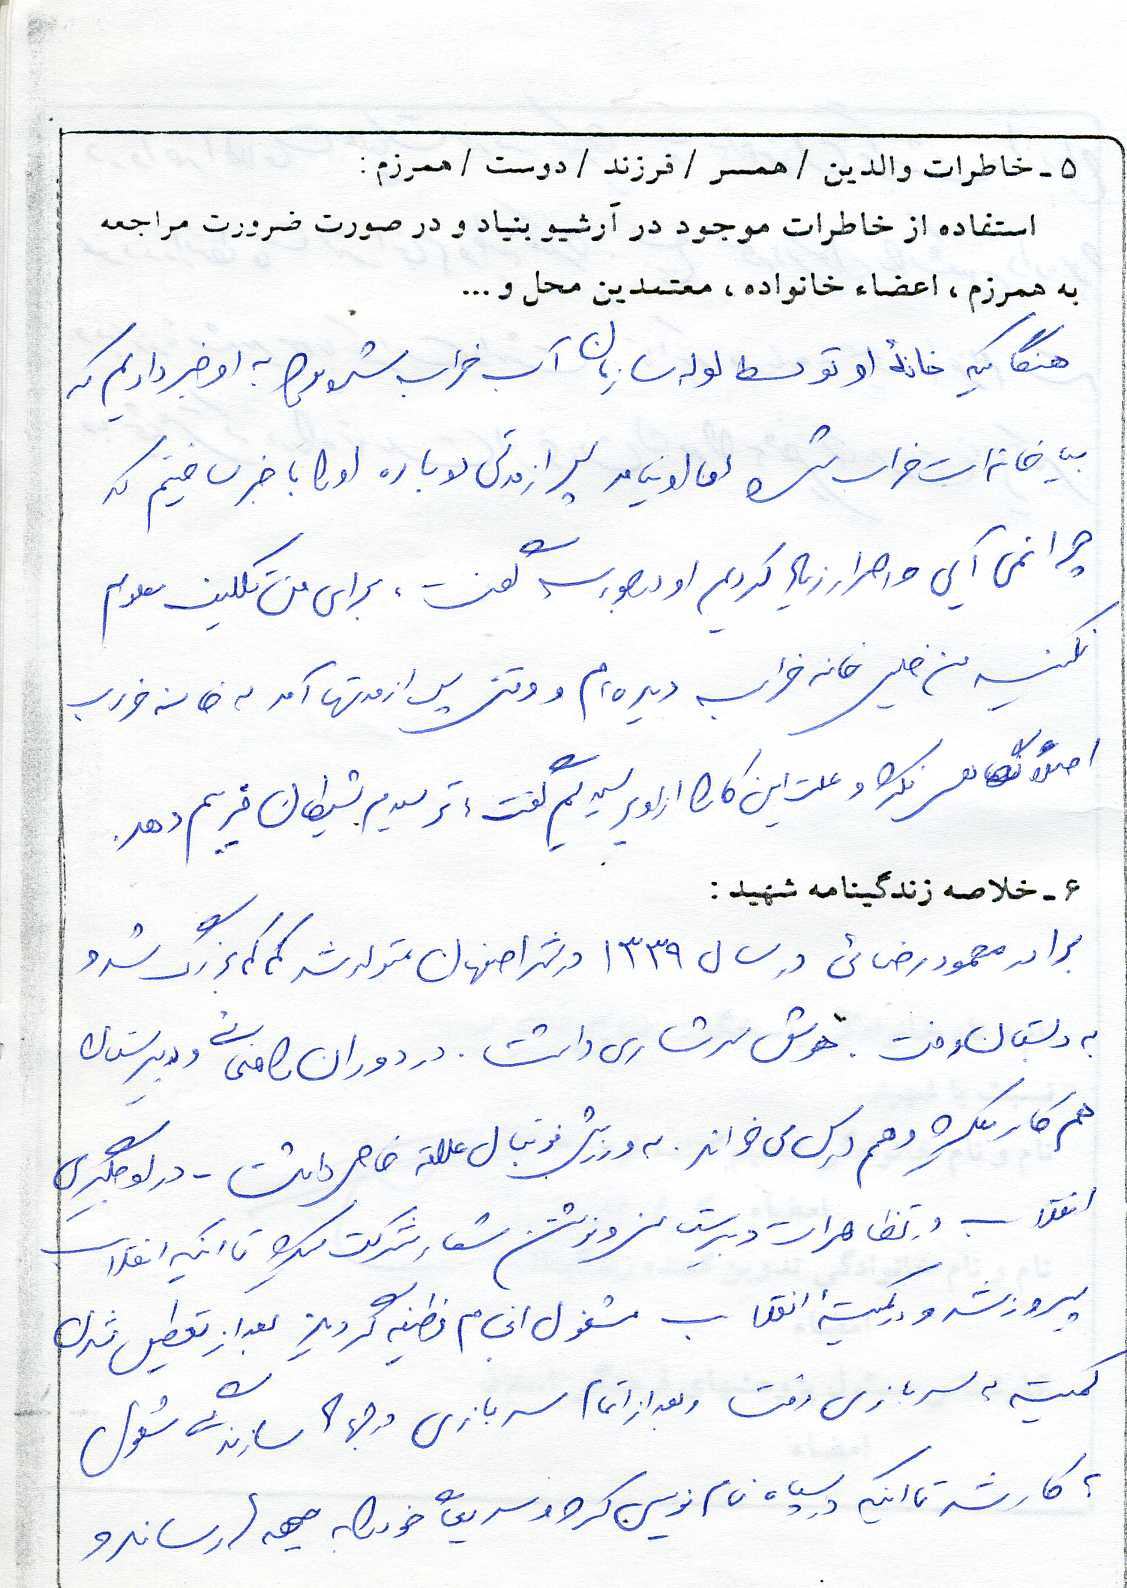 ۵ ـ خاطرات والدین / همسر / فرزند / دوست / همرزم :
استفاده از خاطرات موجود در آرشیو بنیاد و در صورت ضرورت مراجعه
به همرزم ، اعضاء خانواده ، معتمدین محل و ...
هنگامیکه خانۀ او توسط لوله سازمان آب خراب شده بود به او خبر دادیم که
بیا خانه‌ات خراب شده اما او نیامد پس از مدتی دوباره او را با خبر ساختیم که
چرا نمی آیی و اصرار زیاد کردیم او گفت ، برای من تکلیف معلوم
نکنید من خیلی خانه خراب دیده‌ام و وقتی پس از مدتها آمد به خانه خراب
اصلاً نگاهی نکرد و علت این کار را از او پرسیدیم گفت ، ترسیدم شیطان فریبم دهد .
۶ ـ خلاصه زندگینامه شهید :
برادر محمود رضائی در سال ۱۳۳۹ در شهر اصفهان متولد شد کم کم بزرگ شد و
به دبستان رفت . هوش سرشاری داشت . در دوران راهنمائی و دبیرستان
هم کار میکرد و هم درس می خواند . به ورزش فوتبال علاقه خاصی داشت - در اوجگیری
انقلاب در تظاهرات و نوشتن شعار شرکت میکرد تا اینکه انقلاب
پیروز شد و در کمیتۀ انقلاب مشغول انجام وظیفه گردید بعد از تعطیل شدن
کمیته به سربازی رفت و بعد از اتمام سربازی در جهاد سازندگی مشغول
به کار شد تا اینکه در سپاه نام نویسی کرد و سریعاً خود را به جبهه رساند و